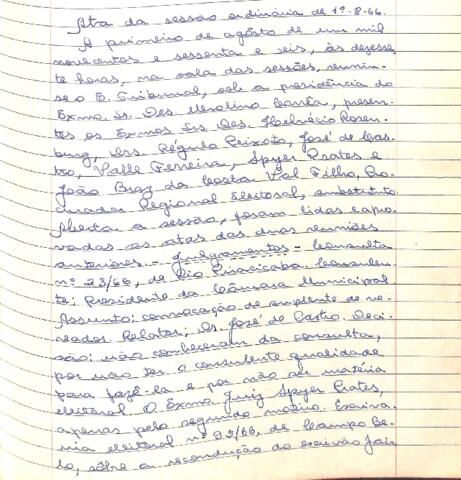 Ata da sessão ordinária de 1º-8-66.
A primeiro de agôsto de um mil
novecentos e sessenta e seis, às dezesse-
te horas, na sala das sessões, reuniu-
se o E. Tribunal, sob a presidência do
Exmo. Sr. Des. Merolino Corrêa, presen-
tes os Exmos Srs. Des. Helvécio Rosen-
burg, Drs. Régulo Peixoto, José de Cas-
tro, Valle Ferreira, Spyer Prates e
João Braz da Costa Val Filho, Pro-
curador Regional Eleitoral, substituto
Aberta a sessão, foram lidas e apro-
vadas as atas das duas reuniões
anteriores - Julgamentos - Consulta
nº 23/66, de Rio Piracicaba. Consulen-
te: Presidente da Câmara Municipal
Assunto: convocação de suplente de ve-
reador. Relator: Dr. José de Castro. Deci-
são: não conheceram da consulta,
por não ter o consulente qualidade
para fazê-la e por não ser matéria
eleitoral. O Exmo. Juiz Spyer Prates,
apenas pelo segundo motivo. Escriva-
nia eleitoral nº 92/66, de Campo Be-
lo, sôbre a recondução do escrivão Jair